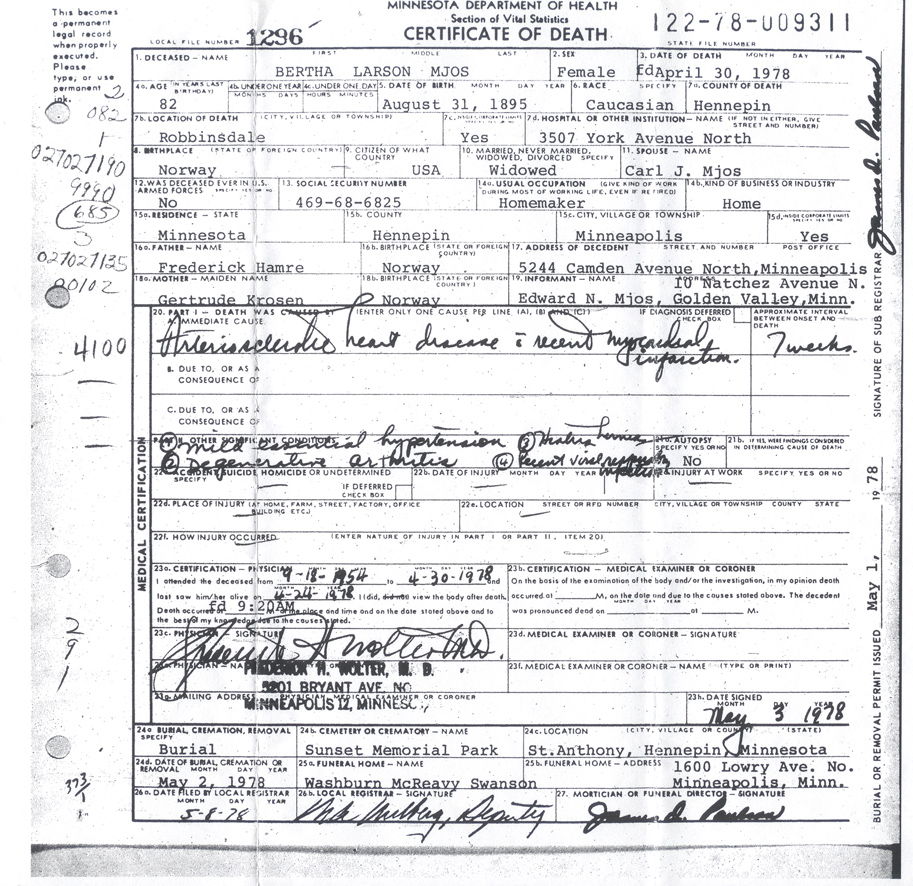 This becomes
a permanent
legal record
when properly
executed.
Please
type, or use
permanent
ink.
MINNESOTA DEPARTMENT OF HEALTH
Section of Vital Statistics
CERTIFICATE OF DEATH
LOCAL FILE NUMBER 1296
122-78-009311
STATE FILE NUMBER
1. DECEASED - NAME FIRST MIDDLE LAST 2. SEX 3. DATE OF DEATH MONTH DAY YEAR
BERTHA LARSON MJOS Female fd April 30, 1978
4a. AGE (IN YEARS LAST BIRTHDAY) 4b. UNDER ONE YEAR MONTHS DAYS 4c. UNDER ONE DAY HOURS MINUTES 5. DATE OF BIRTH MONTH DAY YEAR 6. RACE SPECIFY 7a. COUNTY OF DEATH
82 August 31, 1895 Caucasian Hennepin
7b. LOCATION OF DEATH (CITY, VILLAGE OR TOWNSHIP) 7c. INSIDE CORPORATE LIMITS 7d. HOSPITAL OR OTHER INSTITUTION - NAME (IF NOT IN EITHER, GIVE STREET AND NUMBER)
Robbinsdale Yes 3507 York Avenue North
8. BIRTHPLACE (STATE OR FOREIGN COUNTRY) 9. CITIZEN OF WHAT COUNTRY 10. MARRIED, NEVER MARRIED, WIDOWED, DIVORCED SPECIFY 11. SPOUSE - NAME
Norway USA Widowed Carl J. Mjos
12. WAS DECEASED EVER IN U.S. ARMED FORCES 13. SOCIAL SECURITY NUMBER 14a. USUAL OCCUPATION (GIVE KIND OF WORK DURING MOST OF WORKING LIFE, EVEN IF RETIRED) 14b. KIND OF BUSINESS OR INDUSTRY
No 469-68-6825 Homemaker Home
15a. RESIDENCE - STATE 15b. COUNTY 15c. CITY, VILLAGE OR TOWNSHIP 15d. INSIDE CORPORATE LIMITS
Minnesota Hennepin Minneapolis Yes
16a. FATHER - NAME 16b. BIRTHPLACE (STATE OR FOREIGN COUNTRY) 17. ADDRESS OF DECEDENT STREET AND NUMBER POST OFFICE
Frederick Hamre Norway 5244 Camden Avenue North, Minneapolis
18a. MOTHER - MAIDEN NAME 18b. BIRTHPLACE (STATE OR FOREIGN COUNTRY) 19. INFORMANT - NAME ADDRESS
10 Natchez Avenue N.
Gertrude Krosen Norway Edward N. Mjos, Golden Valley, Minn.
20. PART I - DEATH WAS CAUSED BY (ENTER ONLY ONE CAUSE PER LINE, (A), (B) AND (C)) IF DIAGNOSIS DEFERRED CHECK BOX APPROXIMATE INTERVAL BETWEEN ONSET AND DEATH
A. IMMEDIATE CAUSE
Arteriosclerotic heart disease c recent myocardial infarction. 7 weeks.
B. DUE TO, OR AS A
CONSEQUENCE OF
C. DUE TO, OR AS A
CONSEQUENCE OF
PART II OTHER SIGNIFICANT CONDITIONS 21a. AUTOPSY SPECIFY YES OR NO 21b. IF YES, WERE FINDINGS CONSIDERED IN DETERMINING CAUSE OF DEATH
① mild essential hypertension ③ Hiatus hernia
② Degenerative arthritis ④ Recent viral No
22a. ACCIDENT, SUICIDE, HOMICIDE OR UNDETERMINED SPECIFY IF DEFERRED CHECK BOX 22b. DATE OF INJURY MONTH DAY YEAR INJURY AT WORK SPECIFY YES OR NO
22d. PLACE OF INJURY (AT HOME, FARM, STREET, FACTORY, OFFICE BUILDING ETC.) 22e. LOCATION STREET OR RFD NUMBER CITY, VILLAGE OR TOWNSHIP COUNTY STATE
22f. HOW INJURY OCCURRED (ENTER NATURE OF INJURY IN PART I OR PART II, ITEM 20)
MEDICAL CERTIFICATION
23a. CERTIFICATION - PHYSICIAN
I attended the deceased from 9-18-1954 to 4-30-1978 and
last saw him/her alive on 4-24-1978. I (did, did not) view the body after death.
Death occurred fd 9:20AM M. at the place and time and on the date stated above and to
the best of my knowledge due to the causes stated.
23b. CERTIFICATION - MEDICAL EXAMINER OR CORONER
On the basis of the examination of the body and/or the investigation, in my opinion death
occurred at M, on the date and due to the causes stated above. The decedent
was pronounced dead on at M.
23c. PHYSICIAN SIGNATURE 23d. MEDICAL EXAMINER OR CORONER - SIGNATURE
Frederick H Wolter M.D.
PHYSICIAN - NAME 23f. MEDICAL EXAMINER OR CORONER - NAME (TYPE OR PRINT)
FREDERICK H. WOLTER, M. D.
5201 BRYANT AVE. NO
23g. MAILING ADDRESS PHYSICIAN, MEDICAL EXAMINER OR CORONER 23h. DATE SIGNED MONTH DAY YEAR
MINNEAPOLIS 12, MINNESO May 3 1978
24a. BURIAL, CREMATION, REMOVAL SPECIFY 24b. CEMETERY OR CREMATORY - NAME 24c. LOCATION (CITY, VILLAGE OR COUNTY) (STATE)
Burial Sunset Memorial Park St. Anthony, Hennepin, Minnesota
24d. DATE OF BURIAL, CREMATION OR REMOVAL MONTH DAY YEAR 25a. FUNERAL HOME - NAME 25b. FUNERAL HOME - ADDRESS
1600 Lowry Ave. No.
May 2, 1978 Washburn McReavy Swanson Minneapolis, Minn.
26a. DATE FILED BY LOCAL REGISTRAR MONTH DAY YEAR 26b. LOCAL REGISTRAR - SIGNATURE 27. MORTICIAN OR FUNERAL DIRECTOR - SIGNATURE
5-8-78 Deputy James D. Paulson
BURIAL OR REMOVAL PERMIT ISSUED May 1, 1978 SIGNATURE OF SUB REGISTRAR James D. Paulson
2
082
1
027027190
9990
685
3
027027135
80102
4100
2
9
1
373/1